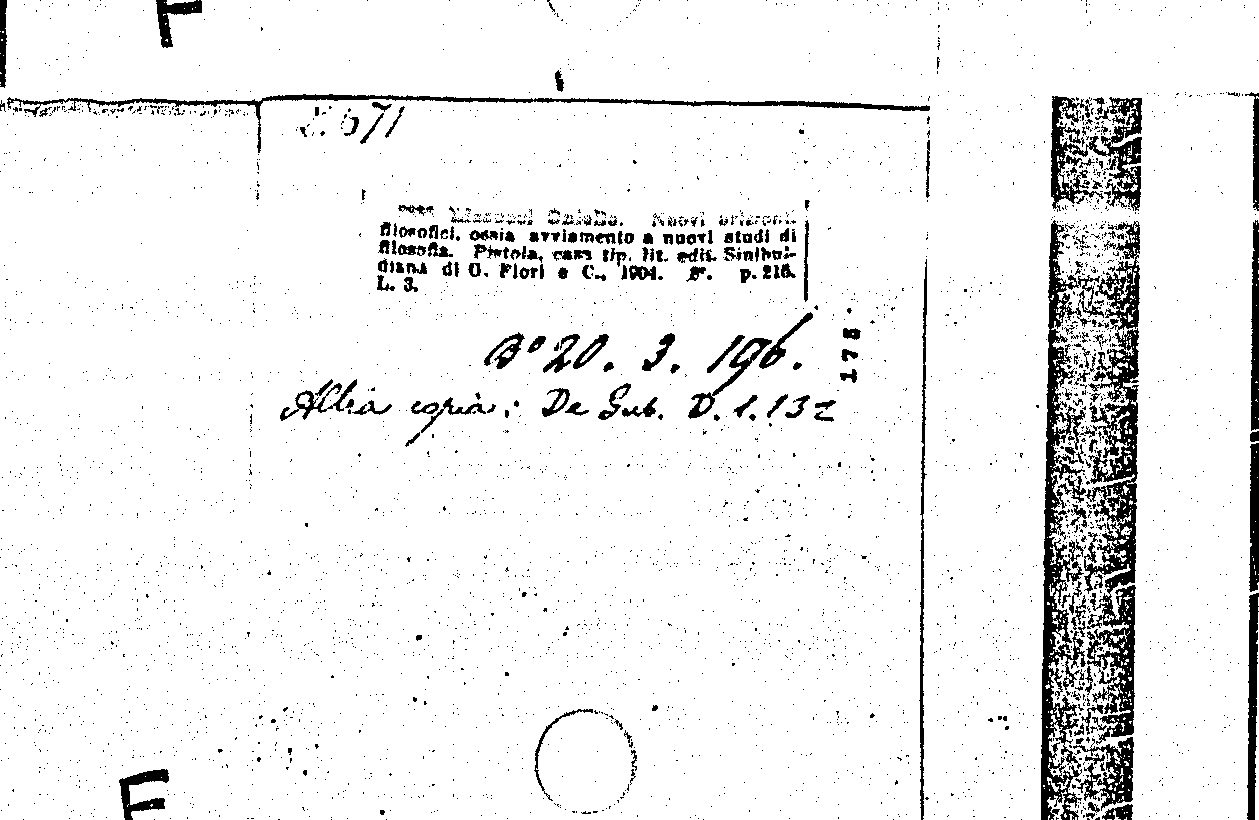 F
671
Nuovi orizzonti
filosofici, ossia avviamento a nuovi studi di
filosofia. Pistoia, casa tip. lit. edit. Sinibul-
diana di G. Flori e C., 1904. 8°. p. 216.
L. 3.
B° 20. 3. 196.
175
Altra copia: De Gub. D. 1. 132
F